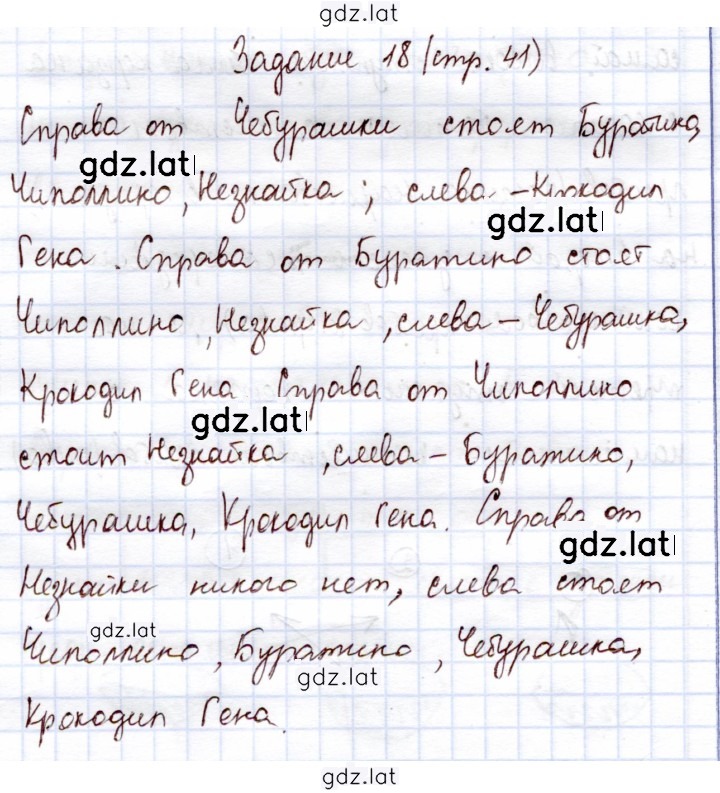 gdz.lat
Задание 18 (стр. 41)
Справа от Чебурашки стоят Буратино,
gdz.lat
Чиполлино, Незнайка; слева - Крокодил
gdz.lat
Гена. Справа от Буратино стоят
Чиполлино, Незнайка, слева - Чебурашка,
Крокодил Гена. Справа от Чиполлино
gdz.lat
стоит Незнайка, слева - Буратино,
Чебурашка, Крокодил Гена. Справа от
gdz.lat
Незнайки никого нет, слева стоят
gdz.lat
Чиполлино, Буратино, Чебурашка,
gdz.lat
Крокодил Гена.
gdz.lat